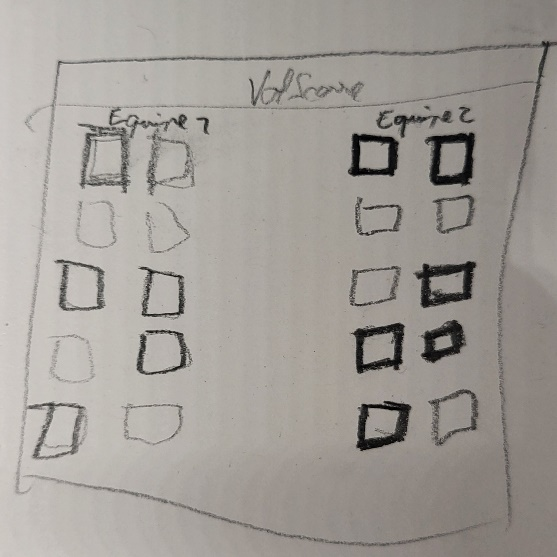 VolScore
Equipe 1 Equipe 2